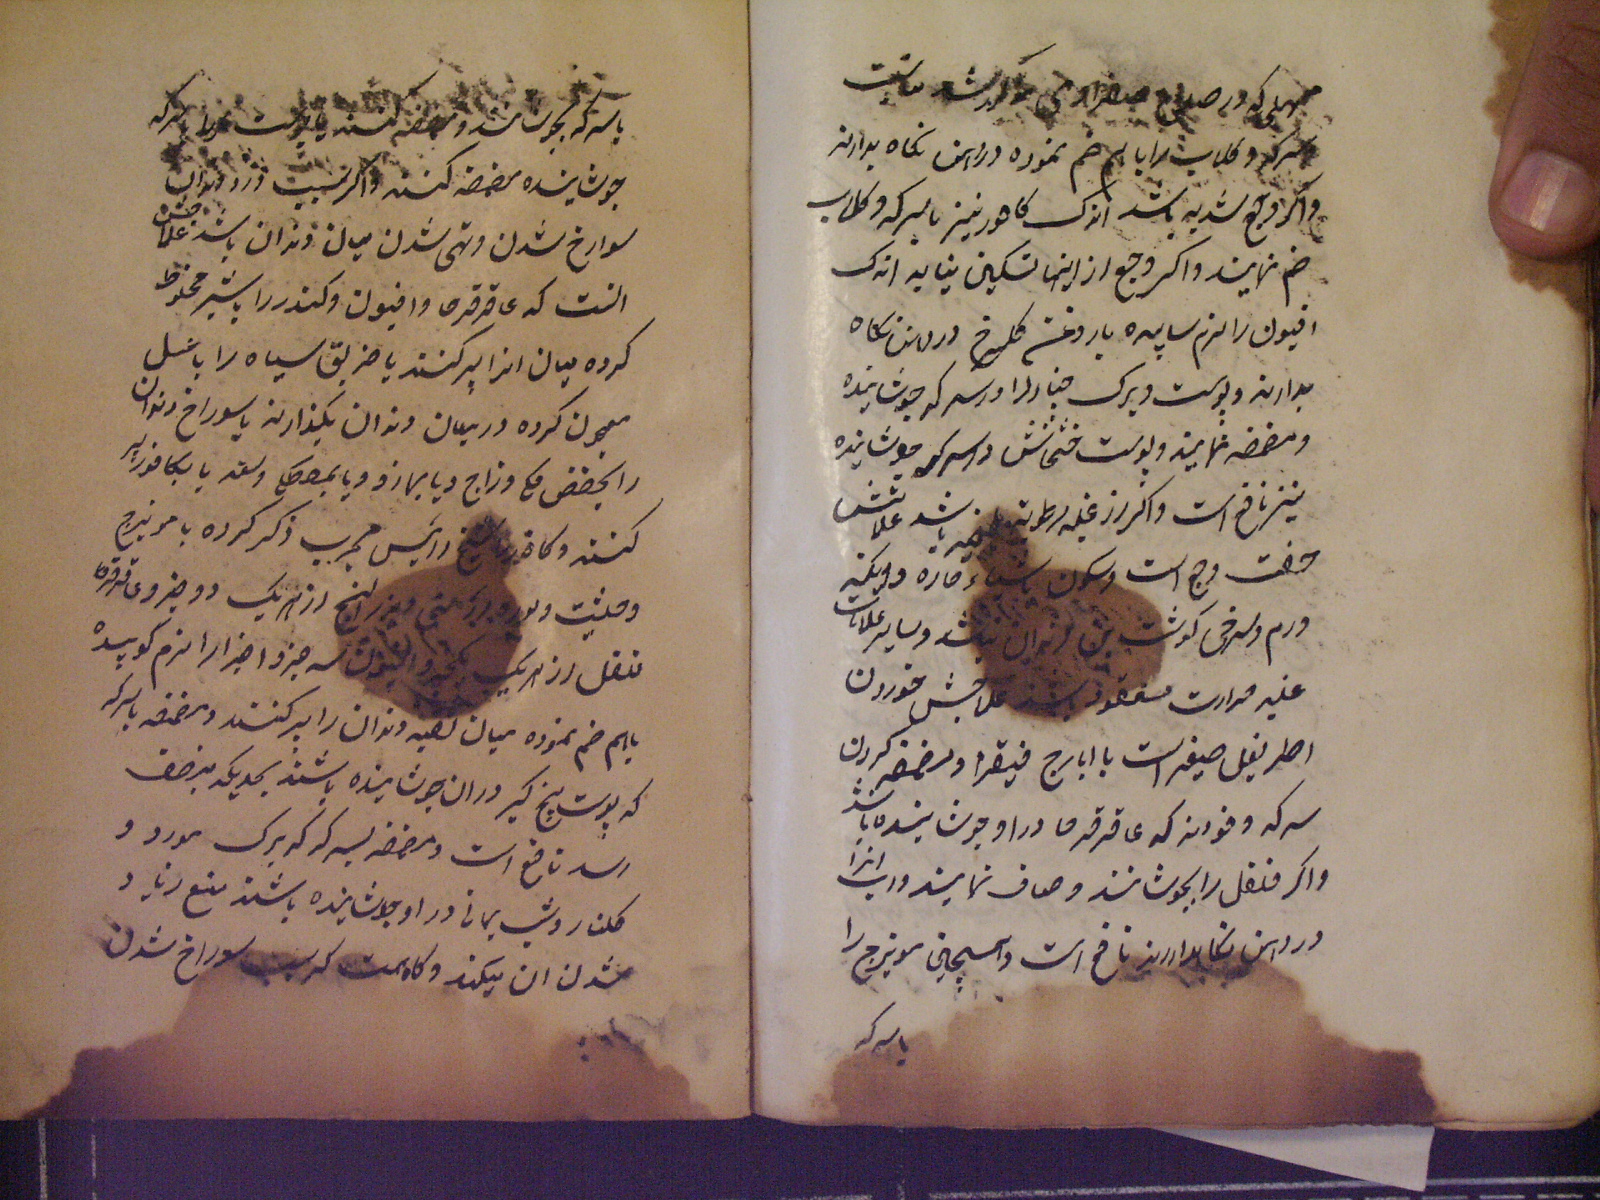 مسهلی که در صداع صفراوی مذکور شد مناسبت
سرکه و کلاب را باهم ضم نموده در دهن نکاه بدارند
و اکر وجع شدید باشد اندک کافور نیز با سرکه و کلاب
ضم نمایند و اکر وجع از اینها تسکین نیابد اندک
افیون را نرم ساییده با روغن کلسرخ در دهن نکاه
بدارند و پوست و برک چنار را در سرکه جوشانیده
و مضمضه نمایند و پوست خشخاش در سرکه جوشانیده
نیز نافع است و اکر از غلبه رطوبت باشد علامتش
خفت وجع است و سکون باشیاء حاره و دیکنه
ورم و سرخی کوشت بن دندان نباشد و سایر علامات
غلبه حرارت مفقود باشند علاجش خوردن
اطریفل صغیر است با ایارج فیقرا و مضمضه کردن
سرکه و فودنه که عاقرقرحا در او جوشانیده باشند
و اکر فلفل را بجوشانند و صاف نمایند و آب انرا
در دهن نکاهدارند نافع است و همچنین مویزج را
با سرکه
با سرکه بجوشانند و مضمضه کنند یا پوست با سرکه
جوشانیده مضمضه کنند و اکر بسبب درد دندان
سوراخ شدن و تهی شدن میان دندان باشد علاجش
انست که عاقرقرحا و افیون و کندر را باشیر مخلوط
کرده میان انرا پر کنند یا خربق سیاه را با عسل
معجون کرده در میان دندان بکذارند یا سوراخ دندان
را بحضض مکی و زاج و یا بمازو و یا بمصطکی و سعد یا بکافور پر
کنند و کافور را شیخ رئیس مجرب ذکر کرده یا مویزج
و حلتیت و بزر البنج از هریک دو جزو عاقرقرحا
فلفل از هریک یکجزو افیون سه جزو اجزا را نرم کوبیده
باهم ضم نموده میان ثقبه دندان را پر کنند و مضمضه با سرکه
که پوست بیخ کبر در ان جوشانیده باشند بحدیکه بنصف
رسد نافع است و مضمضه بسرکه که برک مورد و
کلنار و شب یمانی در او جوشانیده باشند منع زیاد
شدن ان میکند و کاه هست که سبب سوراخ شدن